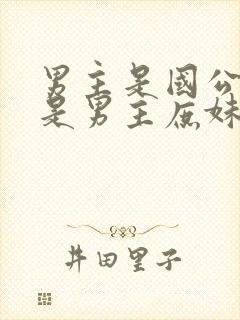 男主是國公
是男主庶妹
井田里子